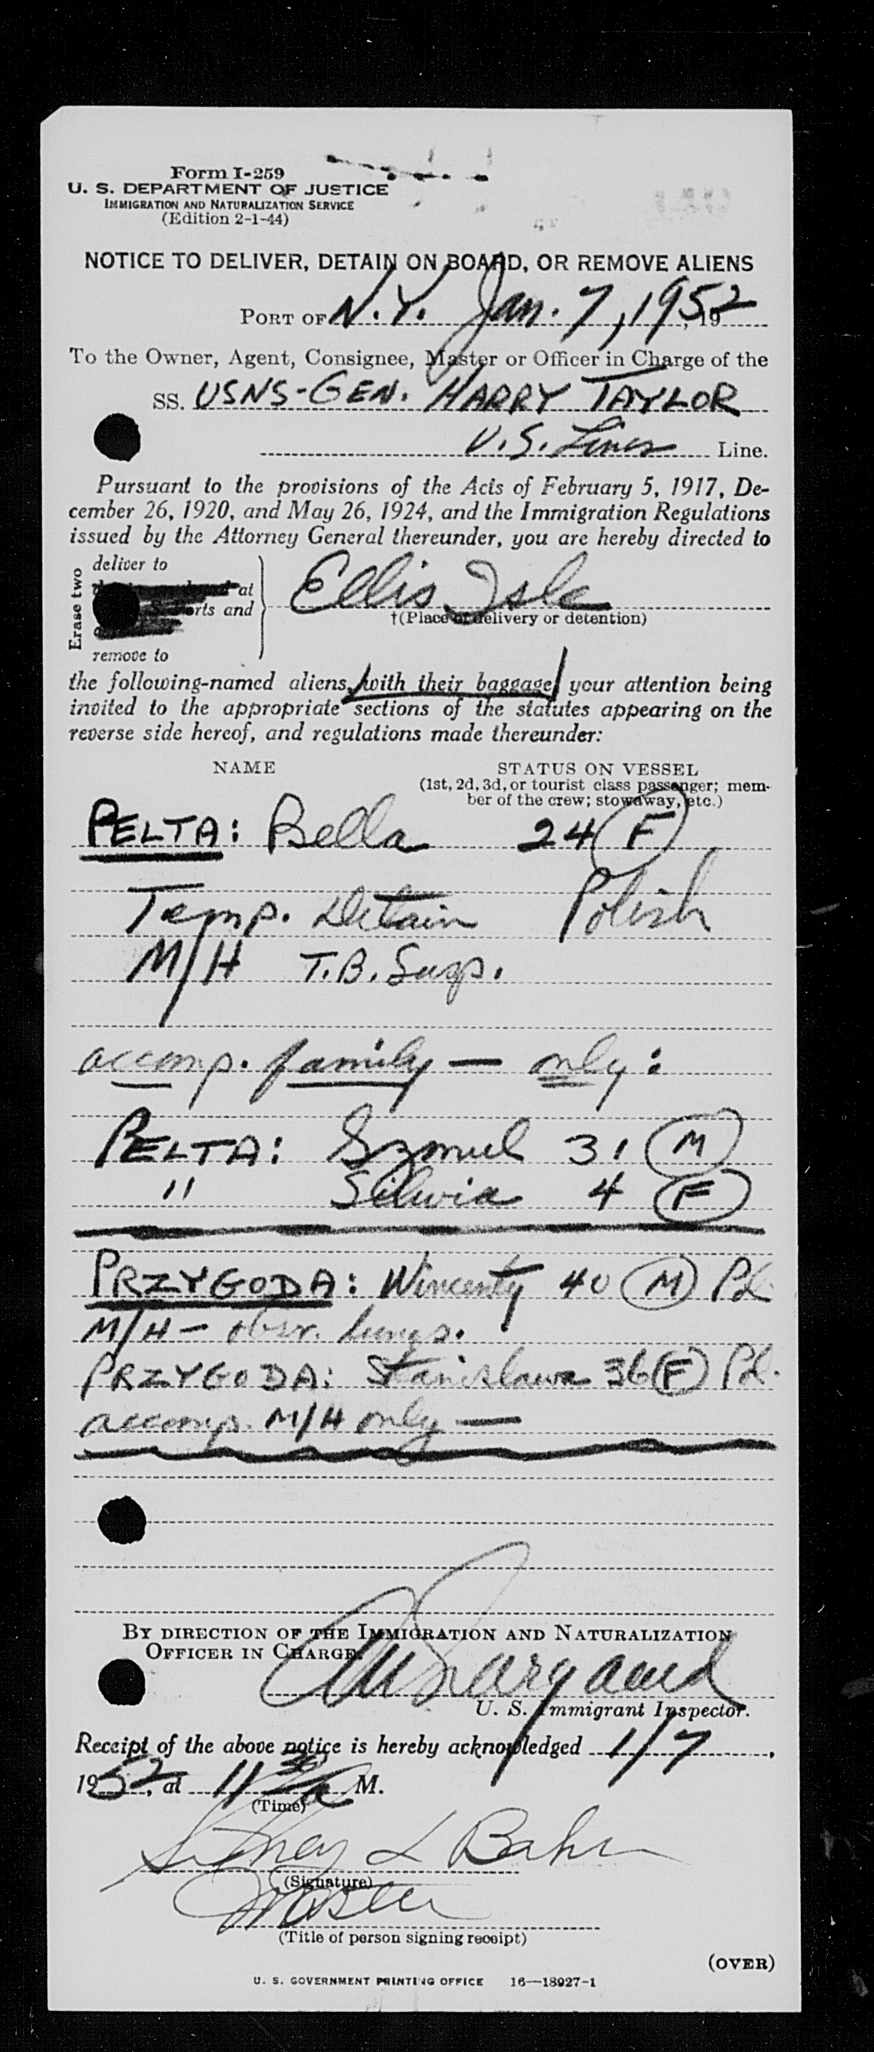 Form I-259
U. S. DEPARTMENT OF JUSTICE
IMMIGRATION AND NATURALIZATION SERVICE
(Edition 2-1-44)
NOTICE TO DELIVER, DETAIN ON BOARD, OR REMOVE ALIENS
PORT OF N.Y. Jan. 7, 1952, 19
To the Owner, Agent, Consignee, Master or Officer in Charge of the
SS. USNS-GEN. HARRY TAYLOR
U.S. Lines Line.
Pursuant to the provisions of the Acts of February 5, 1917, De-
cember 26, 1920, and May 26, 1924, and the Immigration Regulations
issued by the Attorney General thereunder, you are hereby directed to
Erase two
deliver to
at
rts and
remove to
Ellis Isle
†(Place of delivery or detention)
the following-named aliens, with their baggage, your attention being
invited to the appropriate sections of the statutes appearing on the
reverse side hereof, and regulations made thereunder:
NAME STATUS ON VESSEL
(1st, 2d, 3d, or tourist class passenger; mem-
ber of the crew; stowaway, etc.)
PELTA: Bella 24 F
Temp. Detain Polish
M/H T.B. Susp.
accomp. family — only:
PELTA: Szmul 31 M
" Silwia 4 F
PRZYGODA: Wincenty 40 M Pol.
M/H - obsr. lungs.
PRZYGODA: Stanislawa 36 F Pol.
accomp. M/H only —
BY DIRECTION OF THE IMMIGRATION AND NATURALIZATION
OFFICER IN CHARGE.
U. S. Immigrant Inspector.
Receipt of the above notice is hereby acknowledged 1/7,
1952, at 11 30 a M.
(Time)
Sidney L
(Signature)
Master
(Title of person signing receipt)
(OVER)
U. S. GOVERNMENT PRINTING OFFICE 16—18927-1